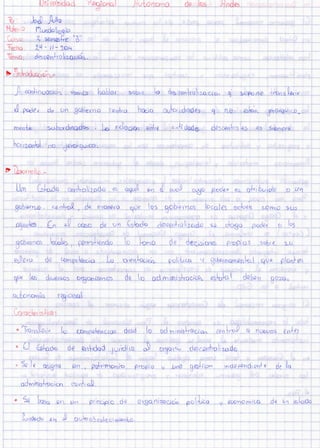 Universidad Regional Autónoma de los Andes
José
3 semestre "B"
Fecha 24-11-2014
Tema descentralización
Introducción.-
A continuación vamos hablar sobre la descentralización y supone transferir
el poder de un gobierno central hacia autoridades q no están jerárquica-
mente subordinadas. La relación entre entidades descentrales es siempre
horizontal no jerárquica.
Desarrollo.-
Un Estado centralizado es aquel en el cual cuyo poder es atribuido a un
gobierno central, de manera que los gobiernos locales actúan como sus
agentes. En el caso de un Estado descentralizado se otorga poder a los
gobiernos locales, permitiendo la toma de decisiones propias sobre su
esfera de competencia. La orientación política y gubernamental que plantea
que los diversos organismos de la administración estatal deben gozar
autonomía regional.
Características:
Transferir la competencias desd la administración central a nuevos entes
El Estado de entidad jurídica al órgano descentralizado.
Se le asigna un patrimonio propio y una gestión independiente de la
administración central.
Se basa en un principio de organización política y económica de un estado
fundado en el autoestablecimiento.